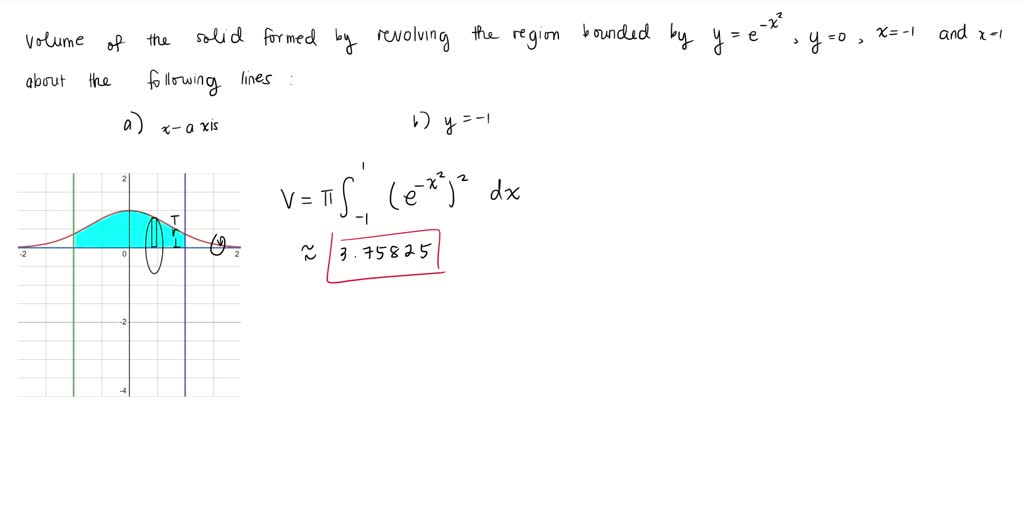 volume of the solid formed by revolving the region bounded by y = e^-x², y=0, x=-1 and x-1
about the following lines :
a) x-axis b) y=-1
V = π∫_-1^1 (e^-x²)² dx
≈ 3.75825
2
-2 0 2
-2
-4
r